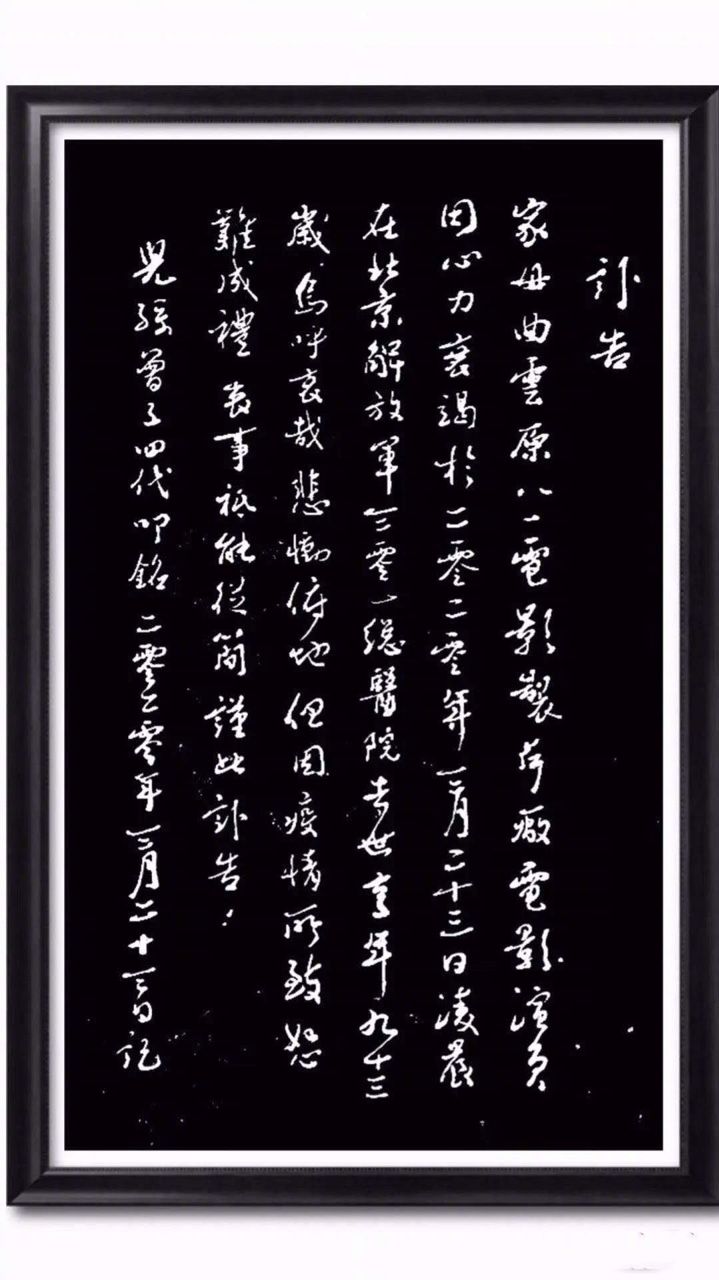 訃告
家母曲雲原八一電影製片廠電影演員
因心力衰竭於二零二零年三月二十三日凌晨
在北京解放軍三零一總醫院去世享年九十三
歲嗚呼哀哉悲慟俯地但因疫情所致恕
難成禮喪事祇能從簡謹此訃告！
兒孫曾子四代叩銘二零二零年三月二十三日記